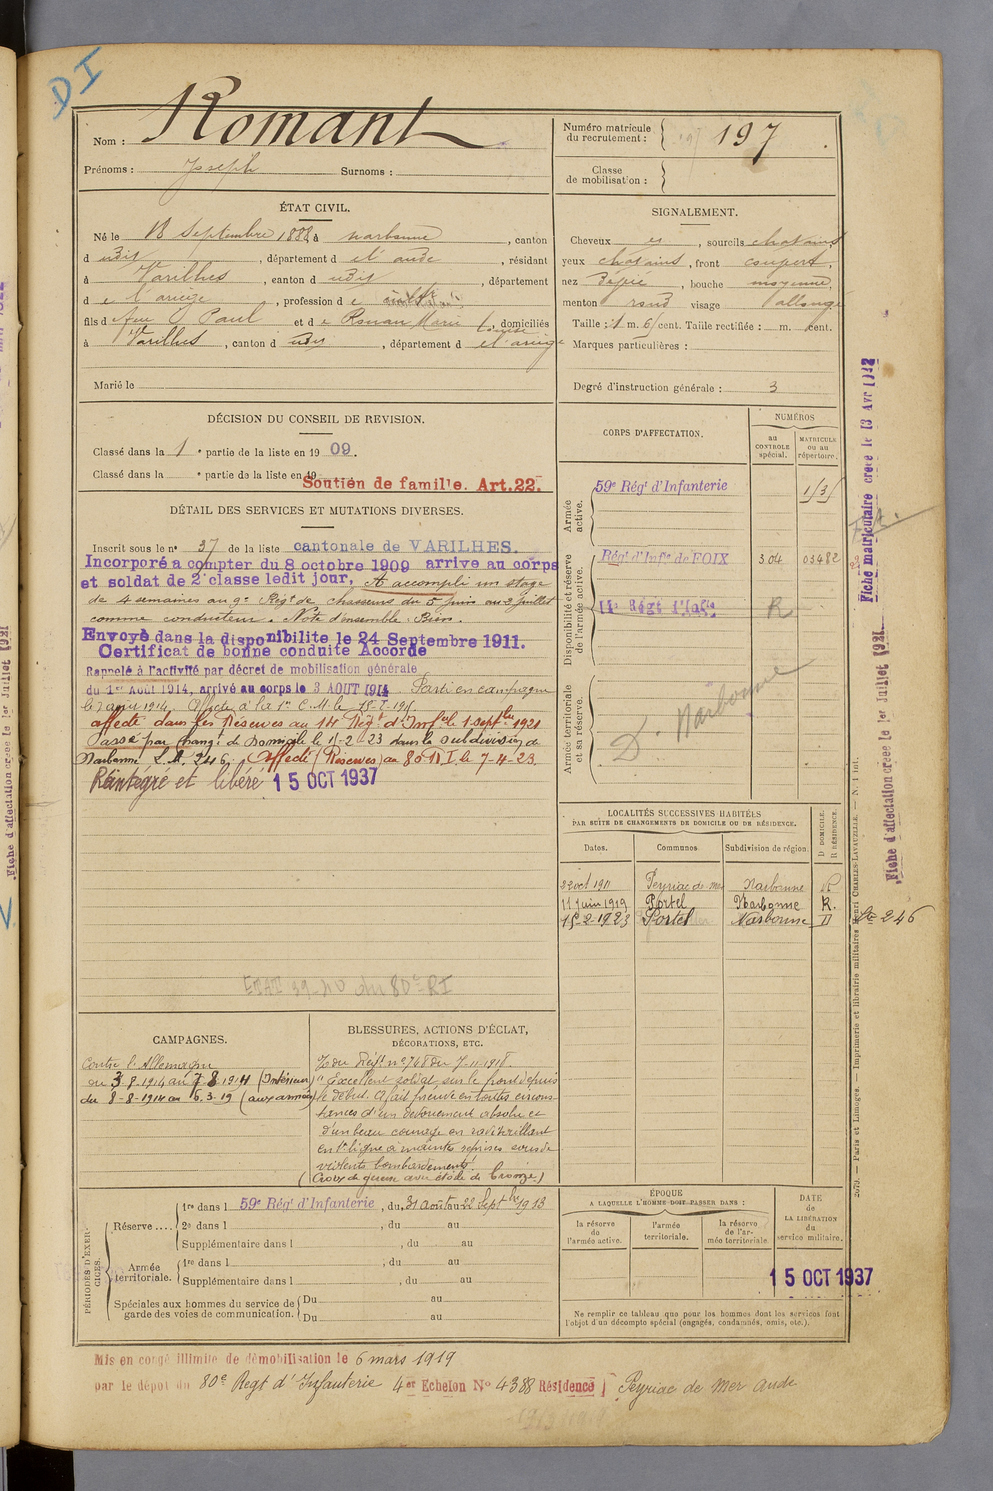 DI
Nom : Romant
Prénoms : Joseph Surnoms :
Numéro matricule du recrutement : 197
Classe de mobilisation :
ÉTAT CIVIL.
Né le 18 Septembre 1888, à narbonne, canton
d udit, département d e l'aude, résidant
à Varilhes, canton d udit, département
d e l'ariège, profession d e
fils d e feu Paul et d e Rouan Marie Louise, domiciliés
à Varilhes, canton d udit, département d e l'ariège
Marié le
SIGNALEMENT.
Cheveux et, sourcils chatains
yeux chatains, front
nez, bouche moyenne,
menton rond visage allongé
Taille : 1 m. 6 cent. Taille rectifiée : m. cent.
Marques particulières :
Degré d'instruction générale : 3
DÉCISION DU CONSEIL DE REVISION.
Classé dans la 1e partie de la liste en 1909.
Classé dans la e partie de la liste en 19
Soutien de famille. Art. 22.
DÉTAIL DES SERVICES ET MUTATIONS DIVERSES.
Inscrit sous le no 37 de la liste cantonale de VARILHES.
Incorporé a compter du 8 octobre 1909 arrive au corps
et soldat de 2e classe ledit jour, A accompli un stage
de 4 semaines au 9e Régt de chasseurs du 5 juin au 2 juillet
comme conducteur. Note d'ensemble : Bien.
Envoyé dans la disponibilite le 24 Septembre 1911.
Certificat de bonne conduite Accorde
Rappelé à l'activité par décret de mobilisation générale
du 1er Août 1914, arrivé au corps le 3 AOUT 1914 Parti en campagne
le 7 août 1914. Affecté à la 1re C.M. le
affecté dans les Réserves au 14 Régt d'Infie le 1 septbre 1921
Passé par changt de Domicile le 15-2-23 dans la subdivision de
Narbonne L.M. 246. Affecté (Réserves) au 80 R I le 7-4-23.
Réintégré et libéré 15 OCT 1937
ETAT 39-40 du 80e RI
CORPS D'AFFECTATION.
NUMÉROS
au CONTROLE spécial.
MATRICULE ou au répertoire.
Armée active.
59e Régt d'Infanterie
Disponibilité et réserve de l'armée active.
Régt d'Infie de FOIX 304 03482
14e Régt d'Infie R
Armée territoriale et sa réserve.
D. Narbonne
LOCALITÉS SUCCESSIVES HABITÉES
PAR SUITE DE CHANGEMENTS DE DOMICILE OU DE RÉSIDENCE.
Dates. Communes. Subdivision de région. D DOMICILE. R RÉSIDENCE.
22 oct 1911 Peyriac de mer Narbonne R
11 Juin 1919 Portel Narbonne R.
15-2-1923 Portel Narbonne D
246
CAMPAGNES.
Contre l'Allemagne
du 3-8-1914 au 7-8-1914 (Intérieur)
du 8-8-1914 au 6.3.19 (aux armées)
BLESSURES, ACTIONS D'ÉCLAT,
DÉCORATIONS, ETC.
O du Régt no 768 du 7-11-1918.
"Excellent soldat, sur le front depuis
le début. A fait preuve en toutes circons-
tances d'un dévouement absolu et
d'un beau courage en ravitaillant
en 1re ligne à maintes reprises sous de
violents bombardements"
(Croix de guerre avec étoile de bronze)
PÉRIODES D'EXERCICES.
Réserve....
1re dans l 59e Régt d'Infanterie, du 31 août au 22 Septbre 1913
2e dans l, du au
Supplémentaire dans l, du au
Armée territoriale.
1re dans l, du au
Supplémentaire dans l, du au
Spéciales aux hommes du service de garde des voies de communication.
Du au
Du au
ÉPOQUE
A LAQUELLE L'HOMME DOIT PASSER DANS :
la réserve de l'armée active.
l'armée territoriale.
la réserve de l'armée territoriale.
DATE DE LA LIBÉRATION du service militaire.
15 OCT 1937
Ne remplir ce tableau que pour les hommes dont les services font
l'objet d'un décompte spécial (engagés, condamnés, omis, etc.).
Mis en congé illimité de démobilisation le 6 mars 1919
par le dépôt du 80e Regt d'Infanterie 4er Echelon No 4388 Résidence Peyriac de Mer Aude
Fiche matriculaire créée le 13 Avr 1942
Fiche d'affectation créée le 1er Juillet 1921
Paris et Limoges. — Imprimerie et librairie militaires Henri CHARLES-LAVAUZELLE.
Fiche d'affectation créée le 1er Juillet 1921